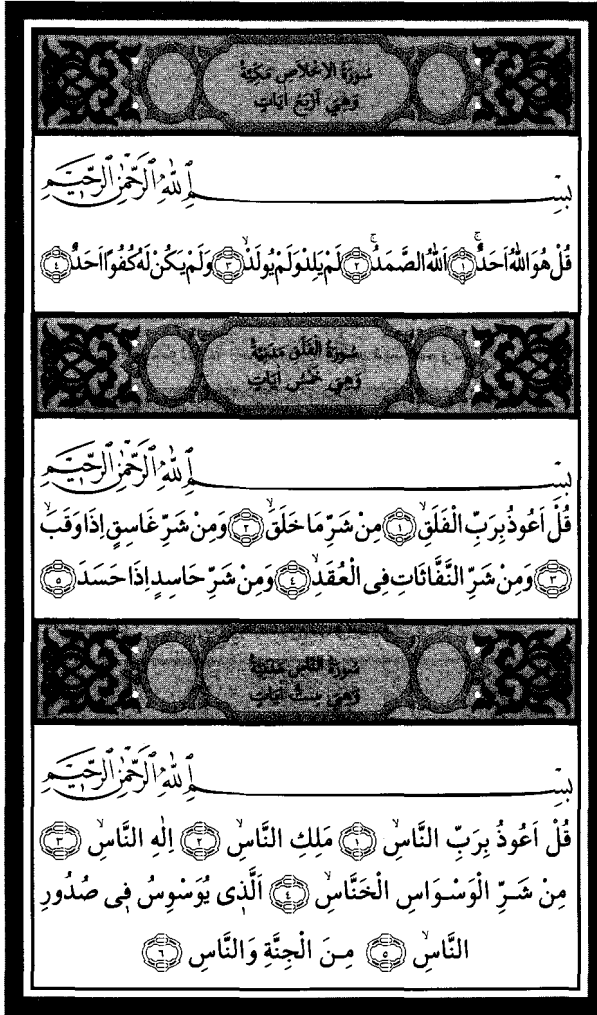 سُورَةُ الْاِخْلَاصِ مَكِّيَّةٌ
وَهِيَ اَرْبَعُ اٰيَاتٍ
بِسْمِ اللّٰهِ الرَّحْمٰنِ الرَّحٖيمِ
قُلْ هُوَ اللّٰهُ اَحَدٌۚ ﴿١﴾ اَللّٰهُ الصَّمَدُۚ ﴿٢﴾ لَمْ يَلِدْ وَلَمْ يُولَدْۙ ﴿٣﴾ وَلَمْ يَكُنْ لَهُ كُفُوًا اَحَدٌ ﴿٤﴾
سُورَةُ الْفَلَقِ مَدَنِيَّةٌ
وَهِيَ خَمْسُ اٰيَاتٍ
بِسْمِ اللّٰهِ الرَّحْمٰنِ الرَّحٖيمِ
قُلْ اَعُوذُ بِرَبِّ الْفَلَقِۙ ﴿١﴾ مِنْ شَرِّ مَا خَلَقَۙ ﴿٢﴾ وَمِنْ شَرِّ غَاسِقٍ اِذَا وَقَبَۙ
﴿٣﴾ وَمِنْ شَرِّ النَّفَّاثَاتِ فِى الْعُقَدِۙ ﴿٤﴾ وَمِنْ شَرِّ حَاسِدٍ اِذَا حَسَدَ ﴿٥﴾
سُورَةُ النَّاسِ مَدَنِيَّةٌ
وَهِيَ سِتُّ اٰيَاتٍ
بِسْمِ اللّٰهِ الرَّحْمٰنِ الرَّحٖيمِ
قُلْ اَعُوذُ بِرَبِّ النَّاسِۙ ﴿١﴾ مَلِكِ النَّاسِۙ ﴿٢﴾ اِلٰهِ النَّاسِۙ ﴿٣﴾
مِنْ شَرِّ الْوَسْوَاسِ الْخَنَّاسِۙ ﴿٤﴾ اَلَّذٖى يُوَسْوِسُ فٖى صُدُورِ
النَّاسِۙ ﴿٥﴾ مِنَ الْجِنَّةِ وَالنَّاسِ ﴿٦﴾